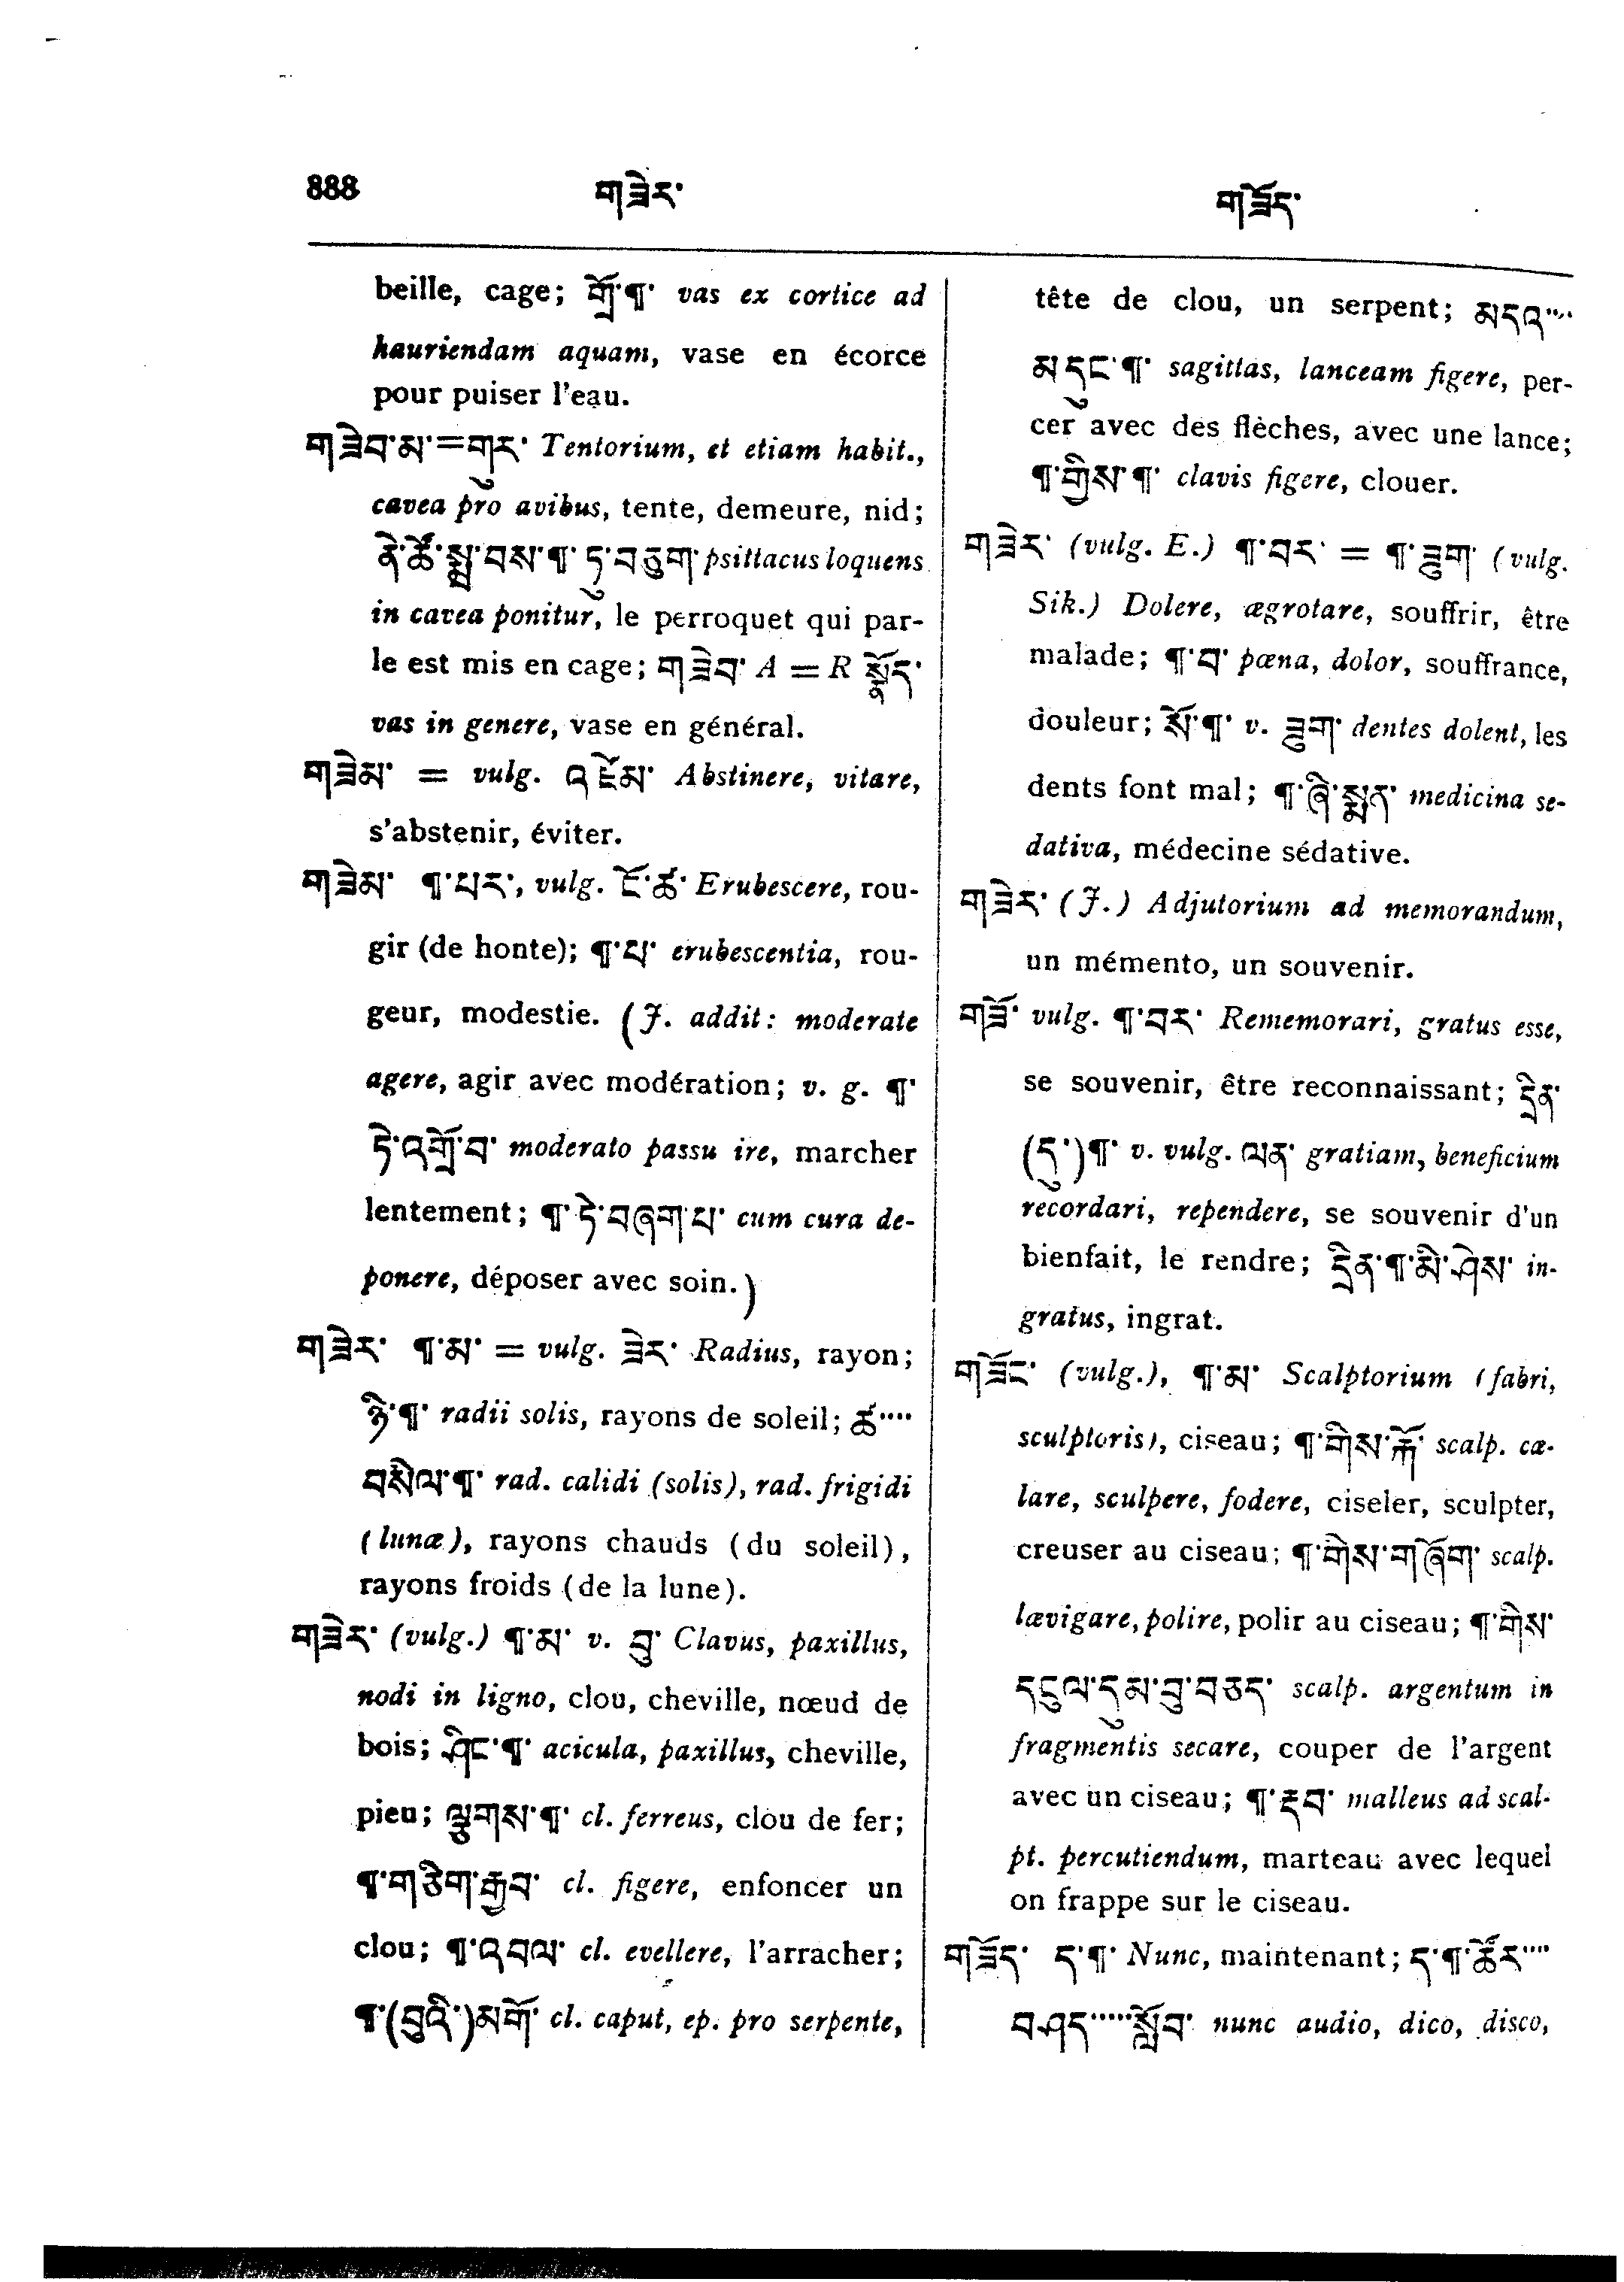 888 གཟེར་ གཟོད་
beille, cage; གྲོ་¶་ vas ex cortice ad
hauriendam aquam, vase en écorce
pour puiser l'eau.
གཟེབ་མ་=གུར་ Tentorium, et etiam habit.,
cavea pro avibus, tente, demeure, nid;
ནེ་ཚོ་སྨྲ་བས་¶་ཏུ་བཅུག་ psittacus loquens
in cavea ponitur, le perroquet qui par-
le est mis en cage; གཟེབ་ A = R སྣོད་
vas in genere, vase en général.
གཟེམ་ = vulg. འཛེམ་ Abstinere, vitare,
s'abstenir, éviter.
གཟེམ་ ¶་པར་, vulg. ངོ་ཚ་ Erubescere, rou-
gir (de honte); ¶་པ་ erubescentia, rou-
geur, modestie. (J. addit: moderate
agere, agir avec modération; v. g. ¶་
ཏེ་འགྲོ་བ་ moderato passu ire, marcher
lentement; ¶་ཏེ་བཞག་པ་ cum cura de-
ponere, déposer avec soin.)
གཟེར་ ¶་མ་ = vulg. ཟེར་ Radius, rayon;
ཉི་¶་ radii solis, rayons de soleil; ཚ····
བསིལ་¶་ rad. calidi (solis), rad. frigidi
(lunæ), rayons chauds (du soleil),
rayons froids (de la lune).
གཟེར་ (vulg.) ¶་མ་ v. བུ་ Clavus, paxillus,
nodi in ligno, clou, cheville, nœud de
bois; ཤིང་¶་ acicula, paxillus, cheville,
pieu; ལྕུགས་¶་ cl. ferreus, clou de fer;
¶་གཅིག་རྒྱབ་ cl. figere, enfoncer un
clou; ¶་འབལ་ cl. evellere, l'arracher;
¶་(བུའི་)མགོ་ cl. caput, ep. pro serpente,
tête de clou, un serpent; མདའ····
མདུང་¶་ sagittas, lanceam figere, per-
cer avec des flèches, avec une lance;
¶་གྱིས་¶་ clavis figere, clouer.
གཟེར་ (vulg. E.) ¶་བར་ = ¶་ཟུག་ (vulg.
Sik.) Dolere, ægrotare, souffrir, être
malade; ¶་བ་ pœna, dolor, souffrance,
douleur; སོ་¶་ v. ཟུག་ dentes dolent, les
dents font mal; ¶་ཞི་སྨན་ medicina se-
dativa, médecine sédative.
གཟེར་ (J.) Adjutorium ad memorandum,
un mémento, un souvenir.
གཟོ་ vulg. ¶་བར་ Rememorari, gratus esse,
se souvenir, être reconnaissant; དྲིན་
(དུ་)¶་ v. vulg. ལན་ gratiam, beneficium
recordari, rependere, se souvenir d'un
bienfait, le rendre; དྲིན་¶་མི་ཤེས་ in-
gratus, ingrat.
གཟོང་ (vulg.), ¶་མ་ Scalptorium (fabri,
sculptoris), ciseau; ¶་གིས་རྐོ་ scalp. cæ-
lare, sculpere, fodere, ciseler, sculpter,
creuser au ciseau; ¶་གིས་གཞོག་ scalp.
lævigare, polire, polir au ciseau; ¶་གིས་
དངུལ་དུམ་བུ་བཅད་ scalp. argentum in
fragmentis secare, couper de l'argent
avec un ciseau; ¶་རྡེབ་ malleus ad scal-
pt. percutiendum, marteau avec lequel
on frappe sur le ciseau.
གཟོད་ ད་¶་ Nunc, maintenant; ད་¶་ཚོར····
བཤད·····སློབ་ nunc audio, dico, disco,